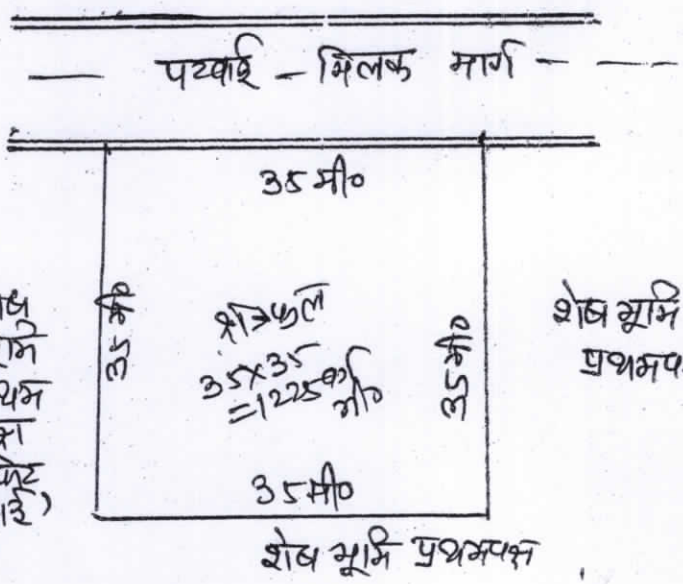 — पटवाई – मिलक मार्ग – —
35 मी०
35 मी०
क्षेत्रफल
35×35
=1225 वर्ग
मी०
35 मी०
35 मी०
शेष भूमि
प्रथमप
शेष भूमि प्रथमपक्ष